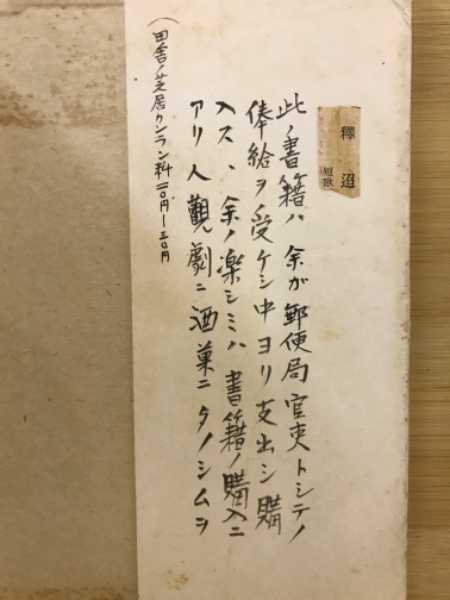 釋迢
短歌
此ノ書籍ハ余ガ郵便局官吏トシテノ
俸給ヲノ受ケシ中ヨリ支出シ購
入ス、余ノ楽シミハ書籍ノ購入ニ
アリ人觀劇ニ酒菓ニタノシムヲ
(田舎ノ芝居カンラン料二〇円ー三〇円